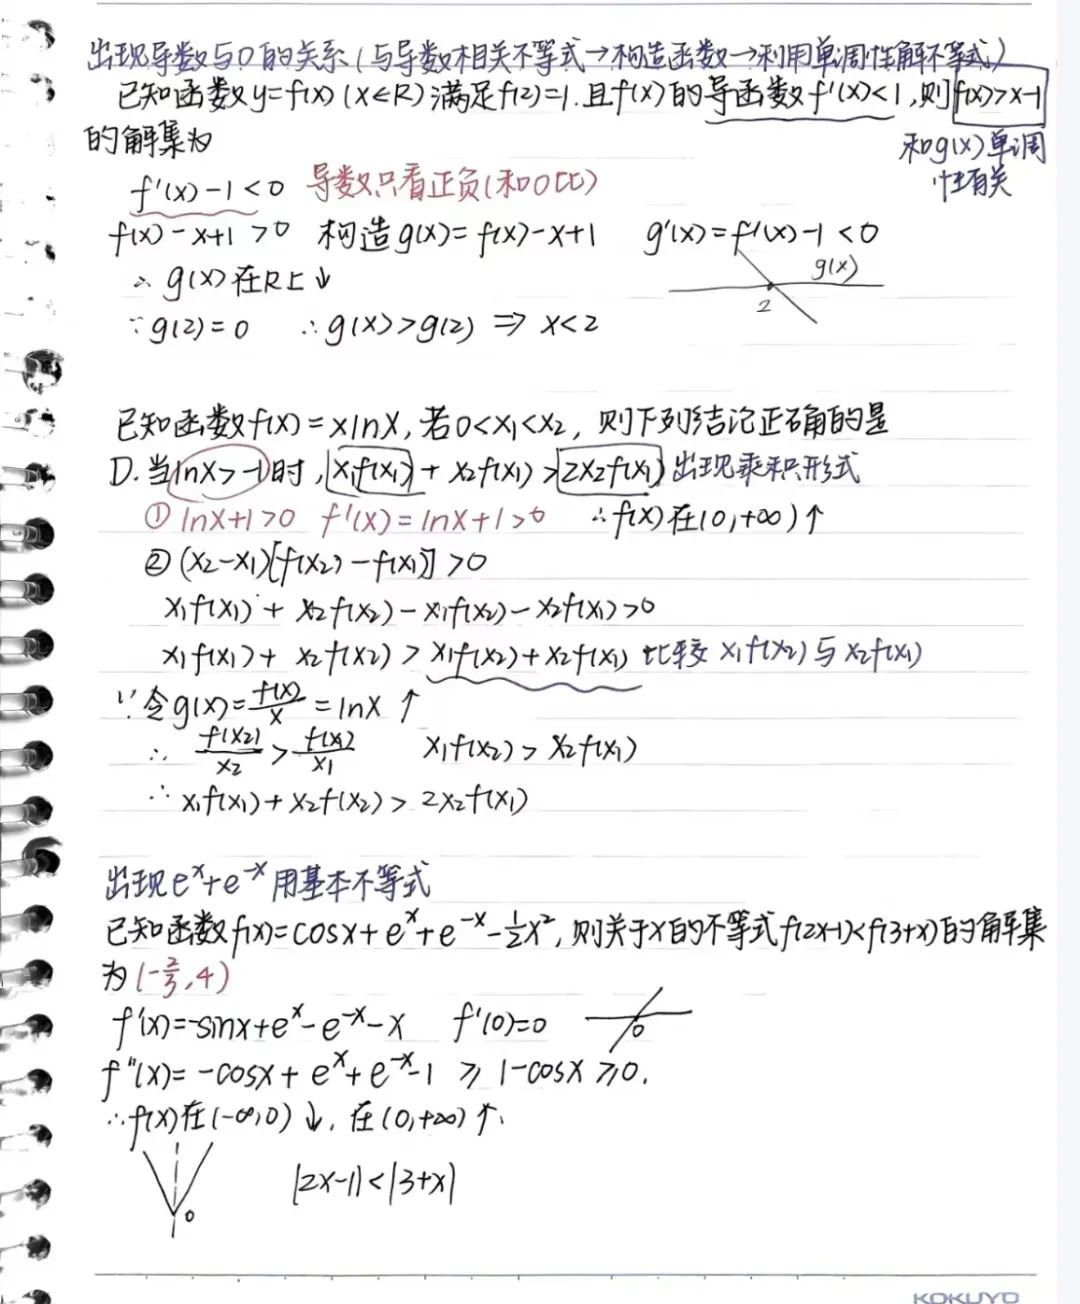 出现导数与0的关系(与导数相关不等式→构造函数→利用单调性解不等式)
已知函数y=f(x)(x∈R)满足f(2)=1.且f(x)的导函数f'(x)<1,则f(x)>x-1
的解集为
和g(x)单调
性有关
f'(x)-1<0 导数只看正负(和0比)
f(x)-x+1>0 构造g(x)=f(x)-x+1 g'(x)=f'(x)-1<0
∴g(x)在R上↓
g(x)
2
∵g(2)=0 ∴g(x)>g(2) ⇒ x<2
已知函数f(x)=xlnx,若0<x₁<x₂,则下列结论正确的是
D.当lnx>-1时,x₁f(x₁)+x₂f(x₁)>2x₂f(x₁) 出现乘积形式
① lnx+1>0 f'(x)=lnx+1>0 ∴f(x)在(0,+∞)↑
② (x₂-x₁)[f(x₂)-f(x₁)]>0
x₁f(x₁)+x₂f(x₂)-x₁f(x₂)-x₂f(x₁)>0
x₁f(x₁)+x₂f(x₂)>x₁f(x₂)+x₂f(x₁) 比较x₁f(x₂)与x₂f(x₁)
∵令g(x)=f(x)/x=lnx ↑
∴ f(x₂)/x₂>f(x₁)/x₁ x₁f(x₂)>x₂f(x₁)
∴x₁f(x₁)+x₂f(x₂)>2x₂f(x₁)
出现eˣ+e⁻ˣ用基本不等式
已知函数f(x)=cosx+eˣ+e⁻ˣ-½x²,则关于x的不等式f(2x-1)<f(3+x)的解集
为(-⅔,4)
f'(x)=-sinx+eˣ-e⁻ˣ-x f'(0)=0 0
f''(x)=-cosx+eˣ+e⁻ˣ-1 ≥ 1-cosx ≥0.
∴f(x)在(-∞,0)↓,在(0,+∞)↑.
0 |2x-1|<|3+x|
KOKUYO